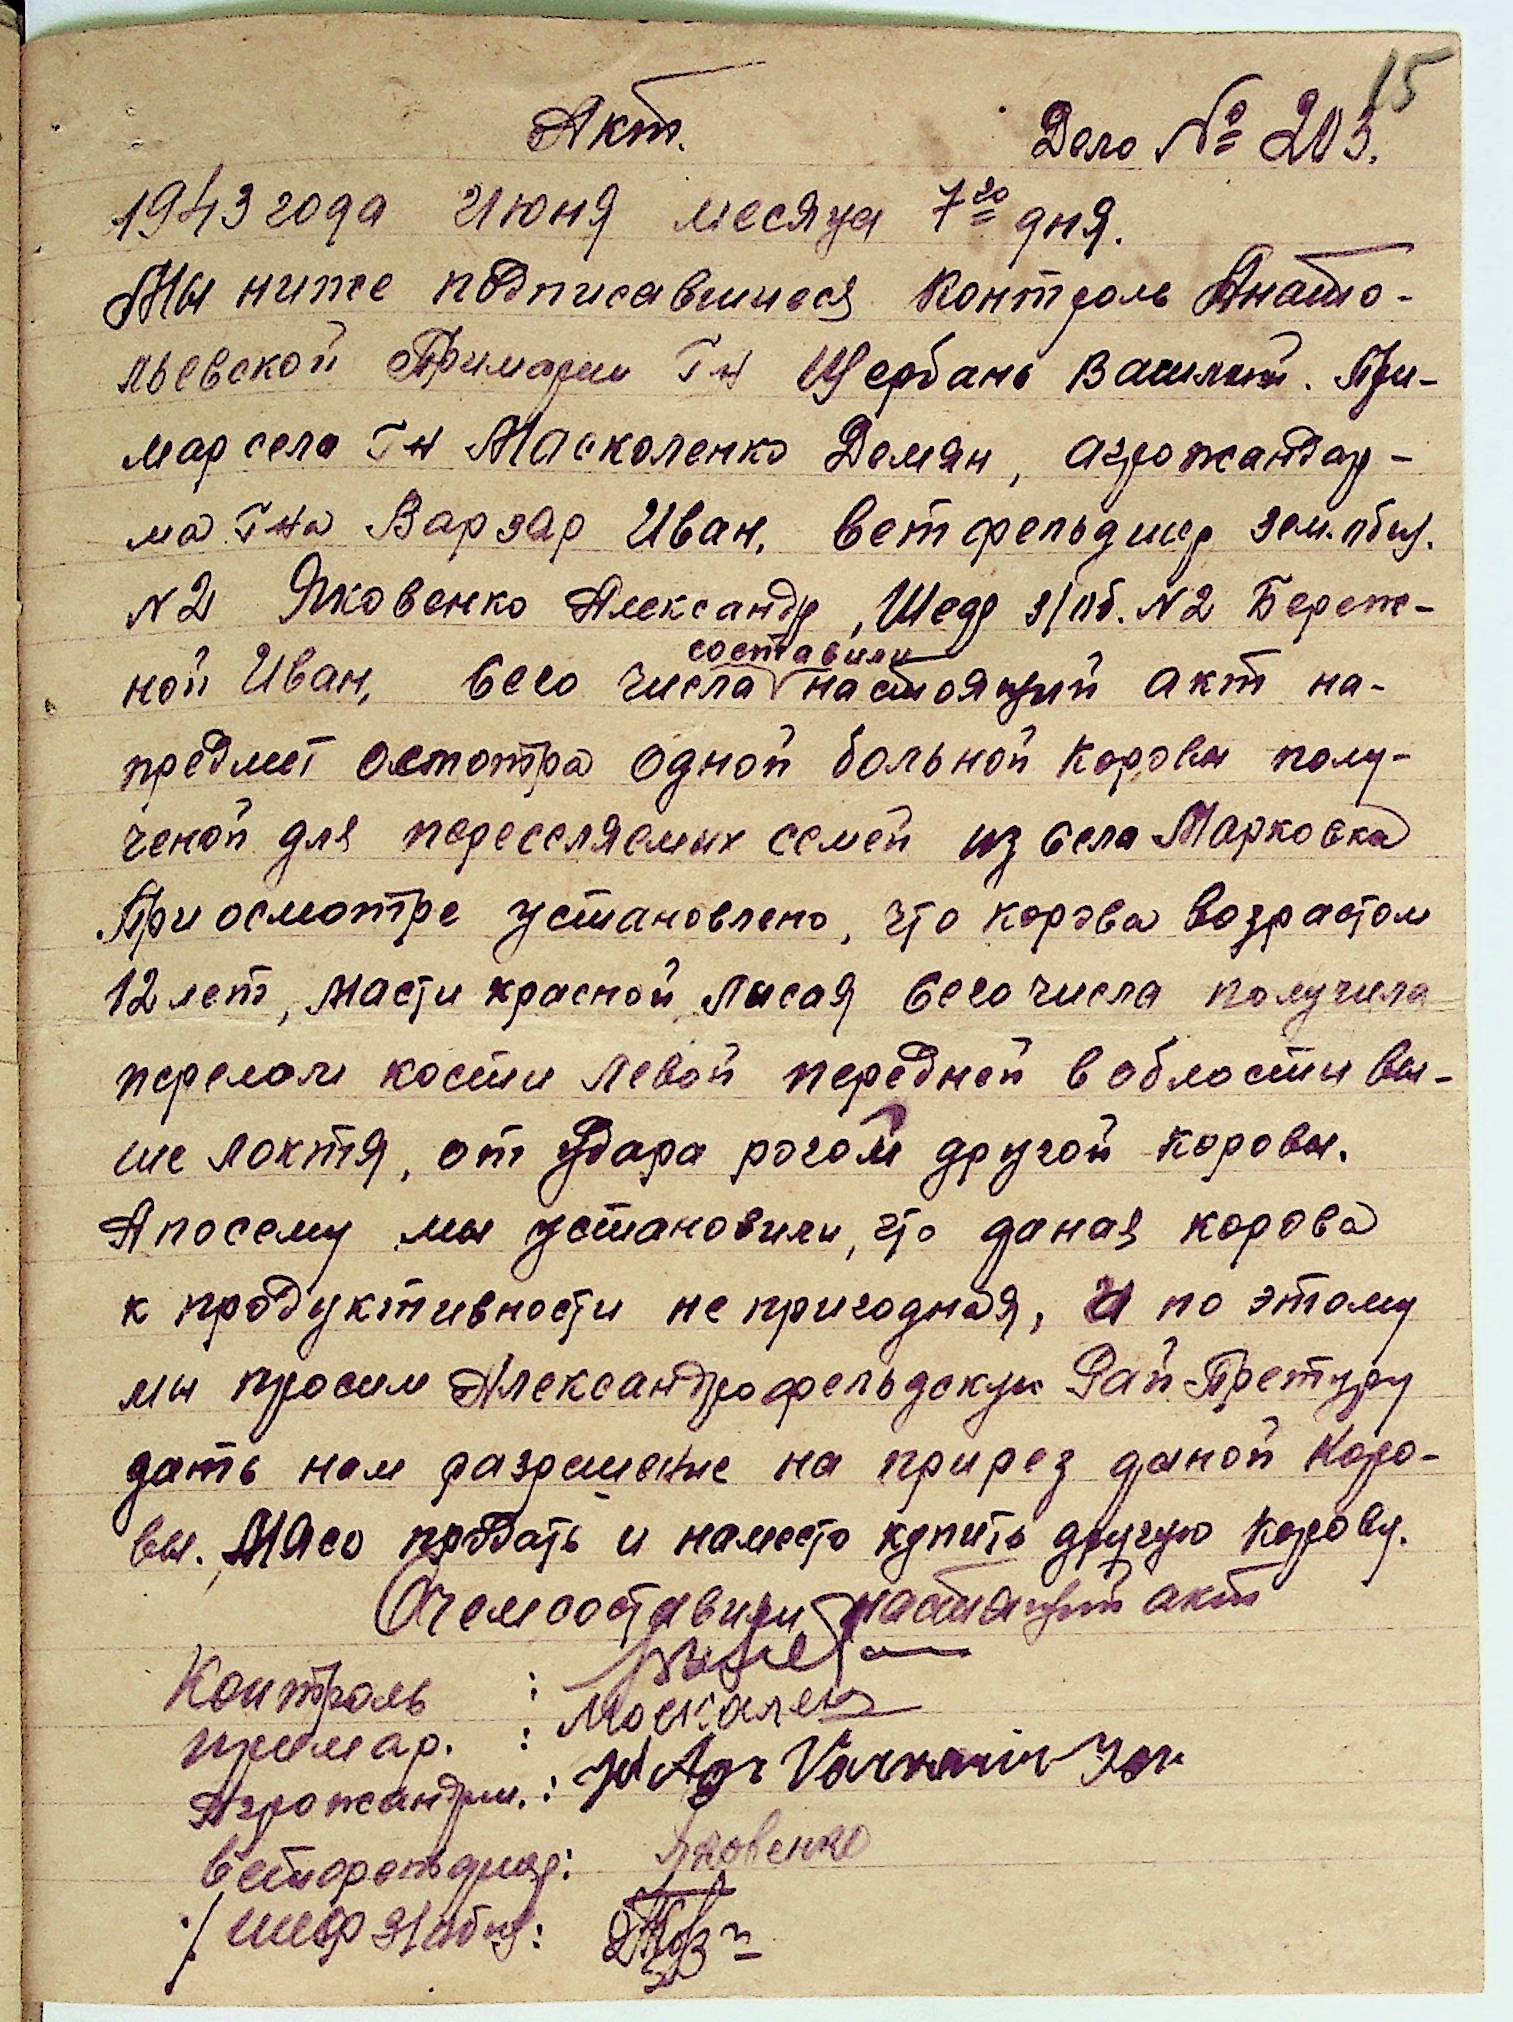 15
Акт. Дело № 203.
1943 года Июня месяца 7го дня.
Мы ниже подписавшиеся Контроль Анато-
льевской Примарии Гн Щербань Василий. При-
мар села Гн Масколенко Демян, агрожандар-
ма Гна Варзар Иван, ветфельдшер зем.
N2 Яковенко Александр, Шеф з/об. N2 Береж-
ной Иван, сего числа составили настоящий акт на-
предмет осмотра одной больной коровы полу-
ченой для переселяемых семей из села Марковка
При осмотре установлено, что корова возрастом
12 лет, масти красной, лысая сего числа получила
перелом кости левой передней в области вы-
ше локтя, от удара рогом другой коровы.
А посему мы установили, что даная корова
к продуктивности не пригодная, и по этому
мы просим Александрофельдскую Рай-Претуру
дать нам разрешение на прирез даной коро-
вы. Мясо продать и наместо купить другую корову.
О чем составили настоящий акт
Контроль :
примар. : Москаленко
Агрожандрм. :
ветфельдшер: Яковенко
/ шеф з/общ: